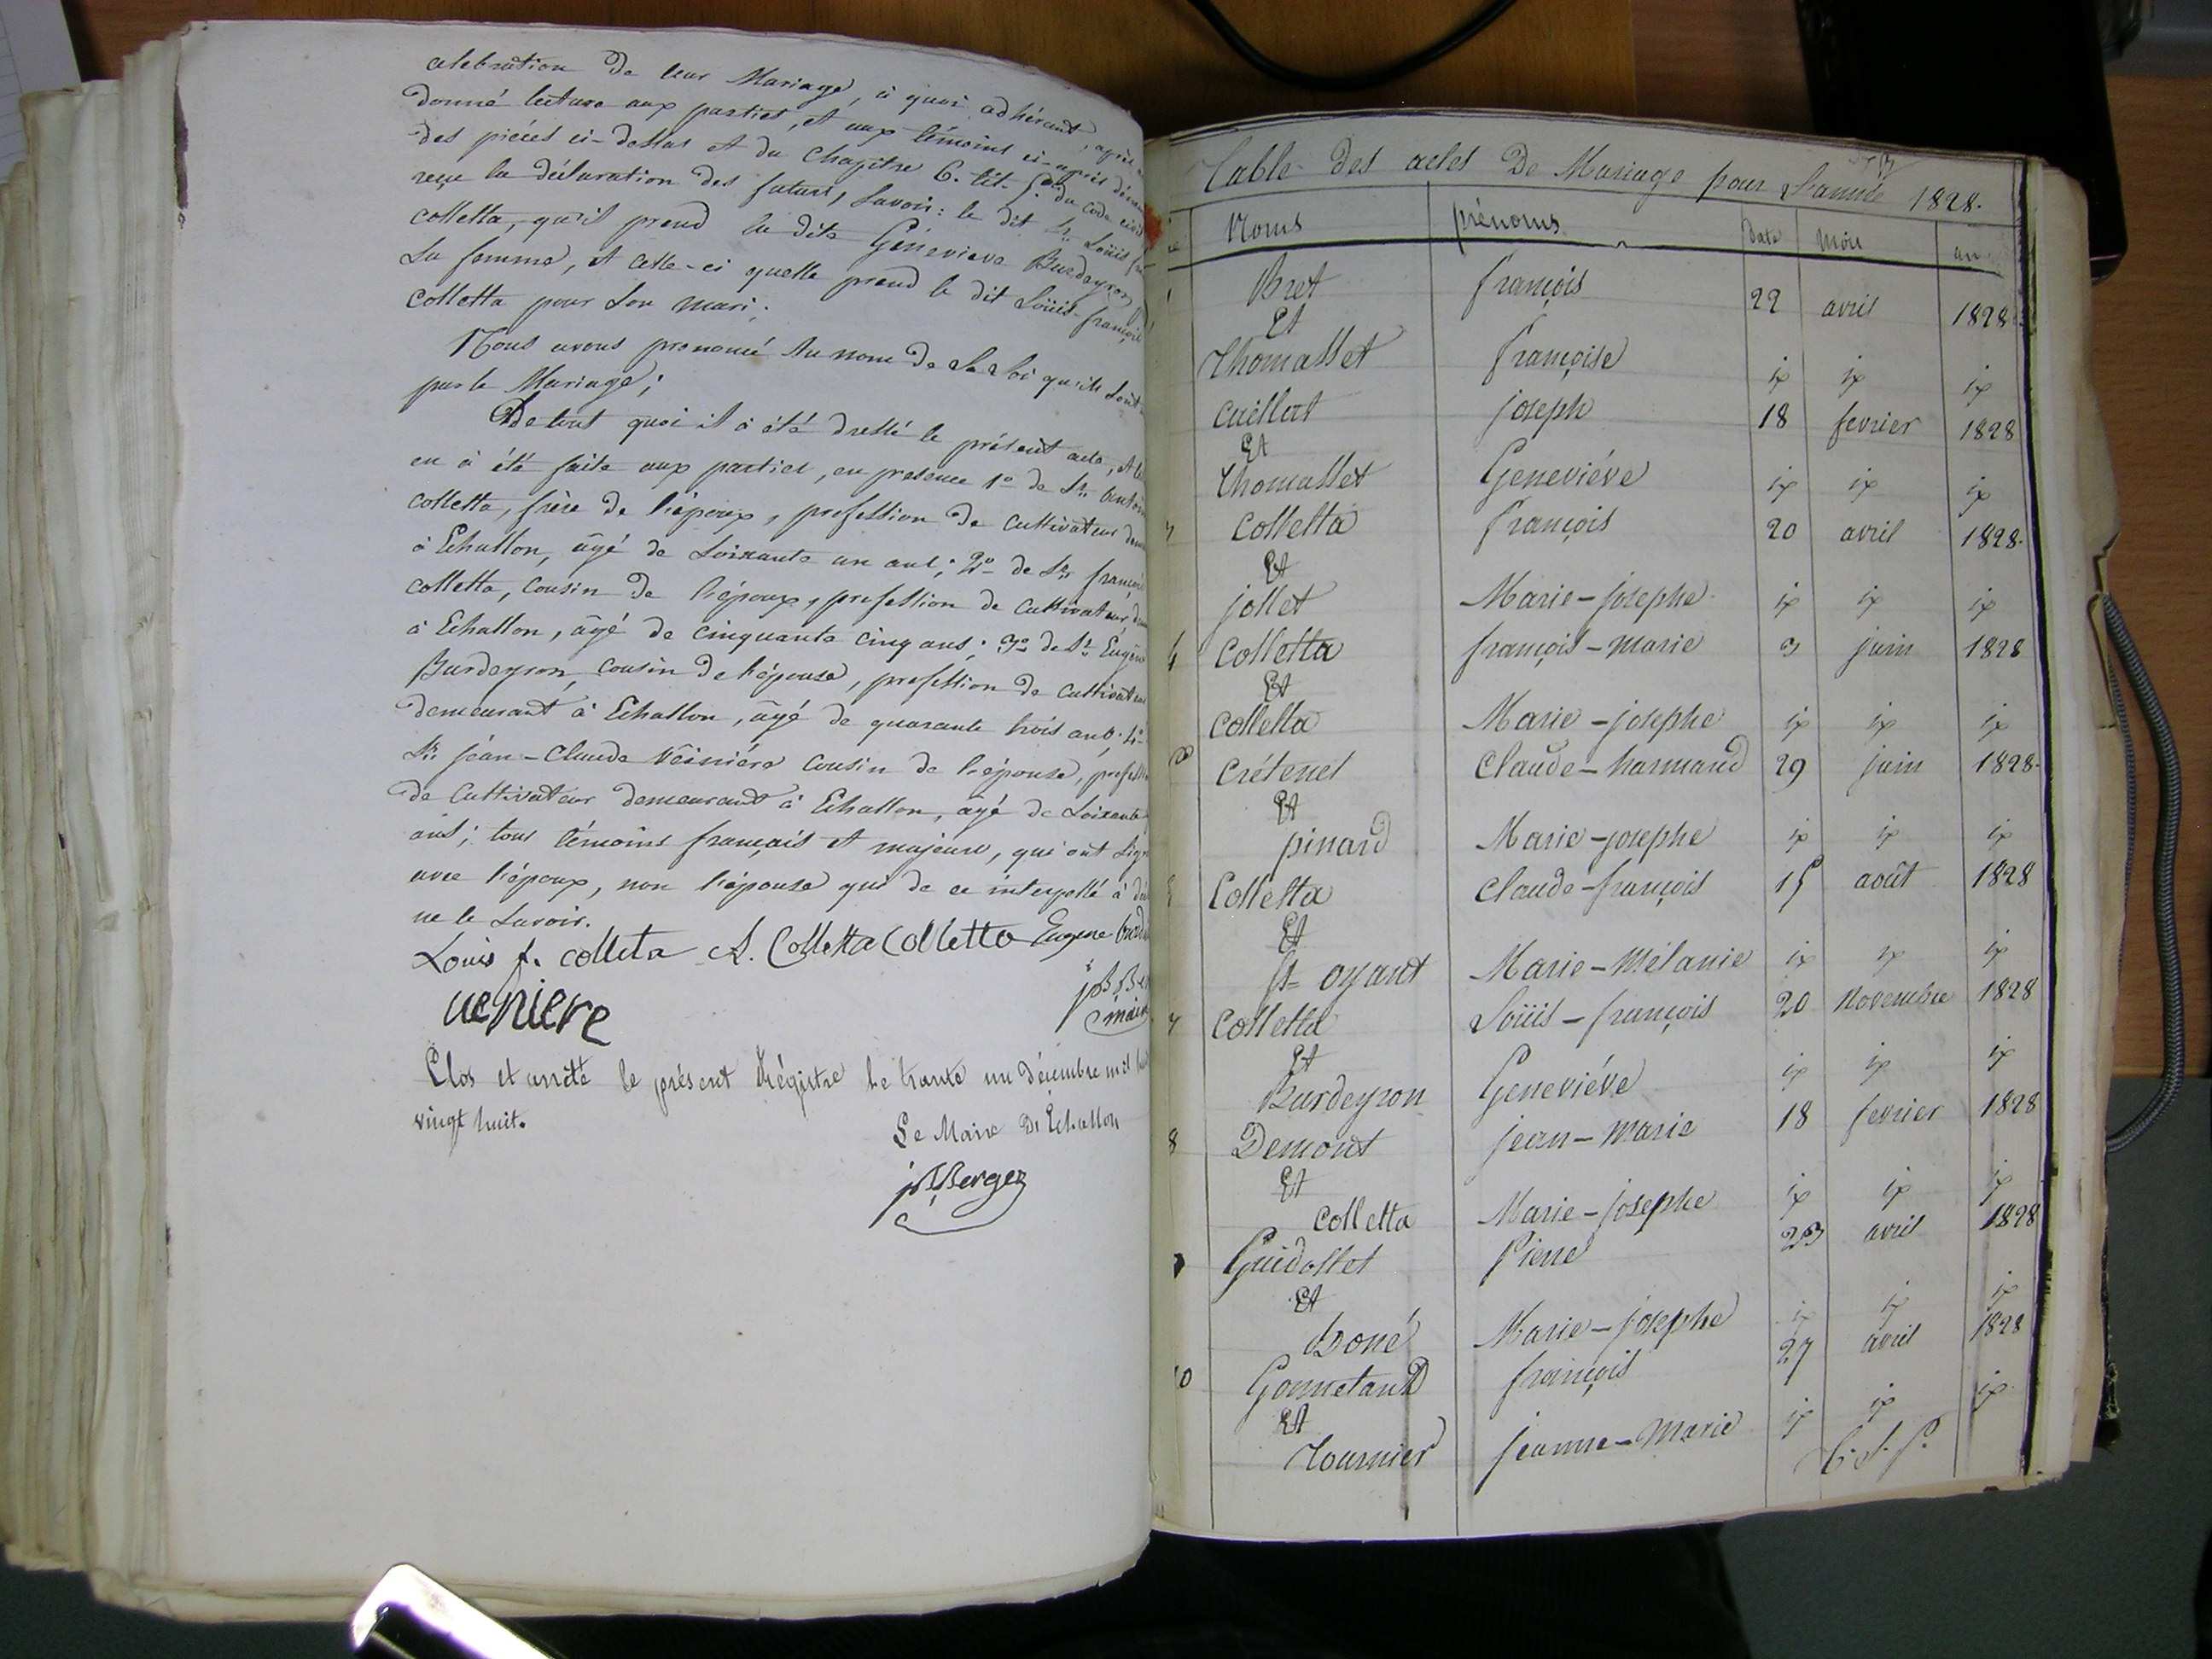 celebration de leur Mariage, à quoi adhérant, après
donné lecture aux parties, et aux témoins ci-après
des pièces ci-dessus et du Chapitre 6. tit. 5. du code civil
reçu la déclaration des futurs, Savoir: le dit Sr. Loüis
colletta, qu'il prend la dite Géneviève Burdeyron
Sa femme, et celle-ci quelle prend le dit Loüis-françois
Colletta pour Son mari;
Nous avons prononcé Au nom de La Loi qu'ils Sont
par le Mariage;
De tout quoi il à été dressé le présent acte, et
en à été faite aux parties, en presence 1o de Sr.
colletta, frère de l'époux, profession de cultivateur
à Echallon, âgé de Soixante un ans; 2o de Sr. françois
colletta, cousin de l'époux, profession de cultivateur
à Echallon, âgé de cinquante cinq ans; 3o de Sr. Eugène
Burdeyron, cousin de l'épouse, profession de cultivateur
demeurant à Echallon, âgé de quarante trois ans; 4o
Sr. jéan-Claude Vèiniére cousin de l'épouse,
de Cultivateur demeurant à Echallon, âgé de Soixante
ans; tous témoins français et majeurs, qui ont
avec l'époux, non l'épouse qui de ce interpellé à
ne le Savoir.
Louis f. colleta A. Colletta Colletta Eugene
veniere
maire
Clos et arrêté le présent Régistre le trante un décembre mil
vingt huit.
Le Maire D'Echallon
jBBergez
Table des actes De Mariage pour L'année 1828.
Noms prénoms Date Mois an
Bret françois 22 avril 1828
Et
Thomasset françoise ix ix ix
Cuillat joseph 18 fevrier 1828
Et
Thomasset Geneviéve ix ix ix
Colletta françois 20 avril 1828.
Et
jollet Marie-josephe ix ix ix
4 Colletta françois-marie 3 juin 1828
Et
colletta Marie-josephe ix ix ix
Crétenet Claude-harmand 29 juin 1828.
Et
pinard Marie-josephe ix ix ix
Colletta Claude-françois 15 août 1828
Et
St oyant Marie-Mélanie ix ix ix
7 Colletta Loüis-françois 20 Novembre 1828
Et
Burdeyron Geneviéve ix ix ix
8 Demont jean-marie 18 fevrier 1828
Et
Colletta Marie-josephe ix ix ix
Guidollet Pierre 23 avril 1828
Et
Boné Marie-josephe ix ix ix
10 Gonnetand françois 27 avril 1828
Et
Tournier jeanne-Marie ix ix ix